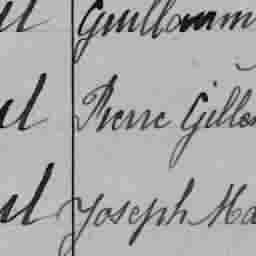 Guillaum
Pierre Gilles
Joseph Ma